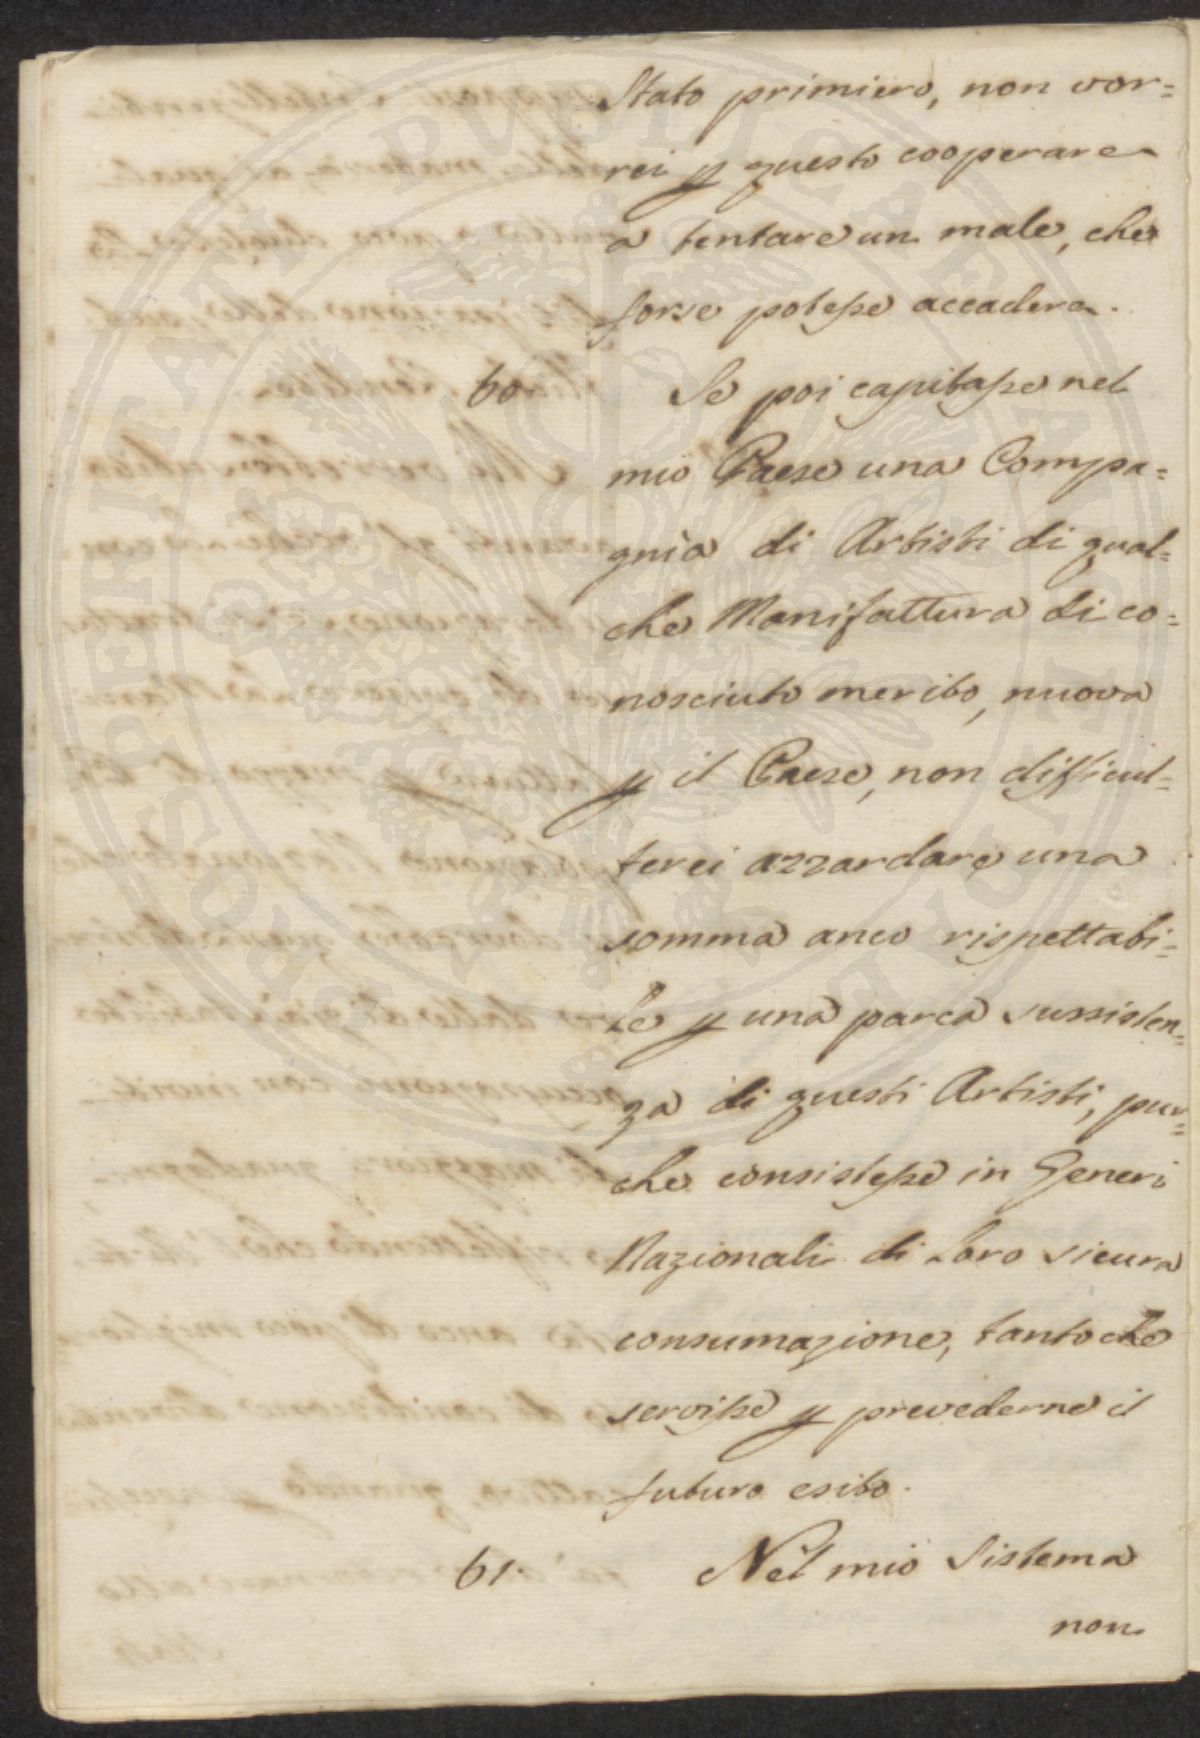 Stato primiero, non vor=
rei p questo cooperare
a tentare un male, che
forse potesse accadere.
60. Se poi capitasse nel
mio Paese una Compa=
gnia di Artisti di qual=
che Manifattura di co=
nosciuto merito, nuova
p il Paese, non difficul=
terei azzardare una
somma anco rispettabi=
le p una parca sussisten=
za di questi Artisti, pur=
che consistesse in Generi
Nazionali di loro sicura
consumazione, tanto che
servisse p prevederne il
futuro esito.
61. Nel mio Sistema
non
PROSPERITATI PVBLICAE AVGENDAE